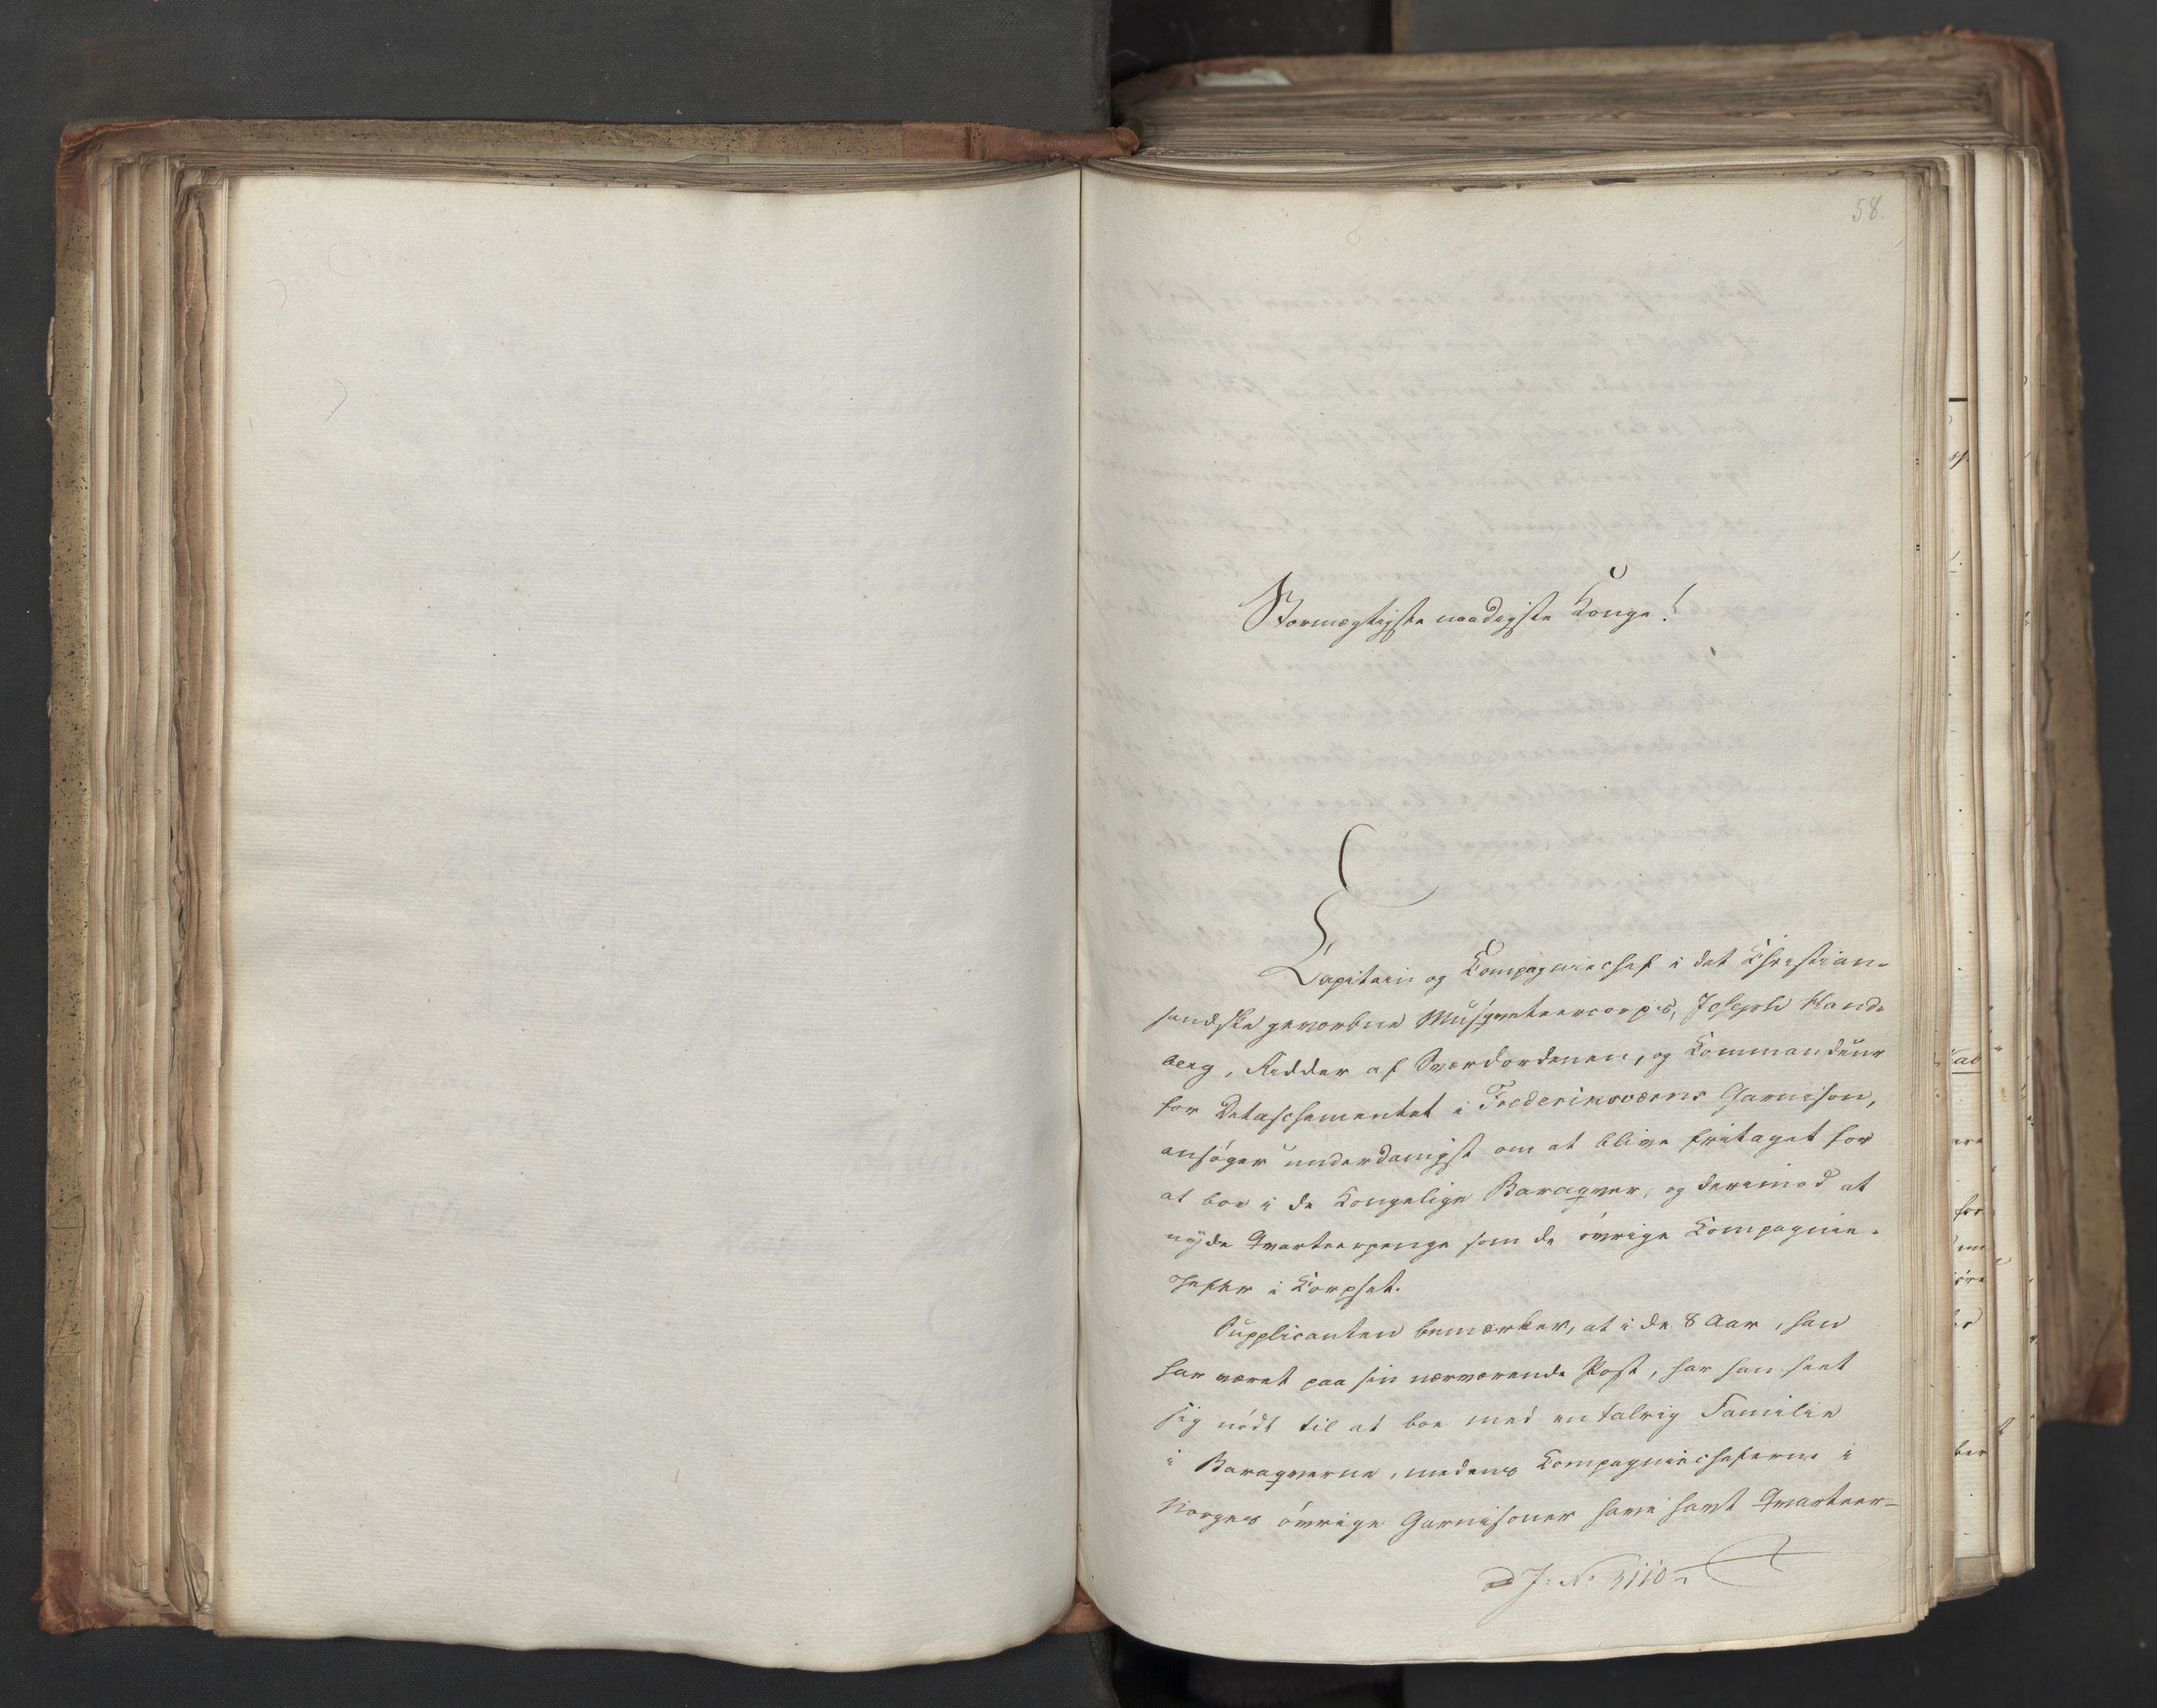 58.
Stormægtigste naadigste Konge!
Capitain og Kompagniechef i det Christian-
sandske gevorbne Musqueteercorps, Joseph Hand-
berg, Ridder af Sværdordenen, og Kommandeur
for Detaschementet i Frederiksværns Garnison,
ansøger underdanigst om at blive fritaget for
at boe i de Kongelige Baraqver, og derimod at
nyde Qvarteerpenge som de øvrige Kompagnie-
chefer i Korpset.
Supplicanten bemærker, at i de 8 Aar, han
har været paa sin nærværende Post, har han seet
sig nødt til at boe med en talrig Familie
i Baraqverne, medens Kompagniecheferne i
Norges øvrige Garnisoner have havt Qvarteer-
J: No 3110